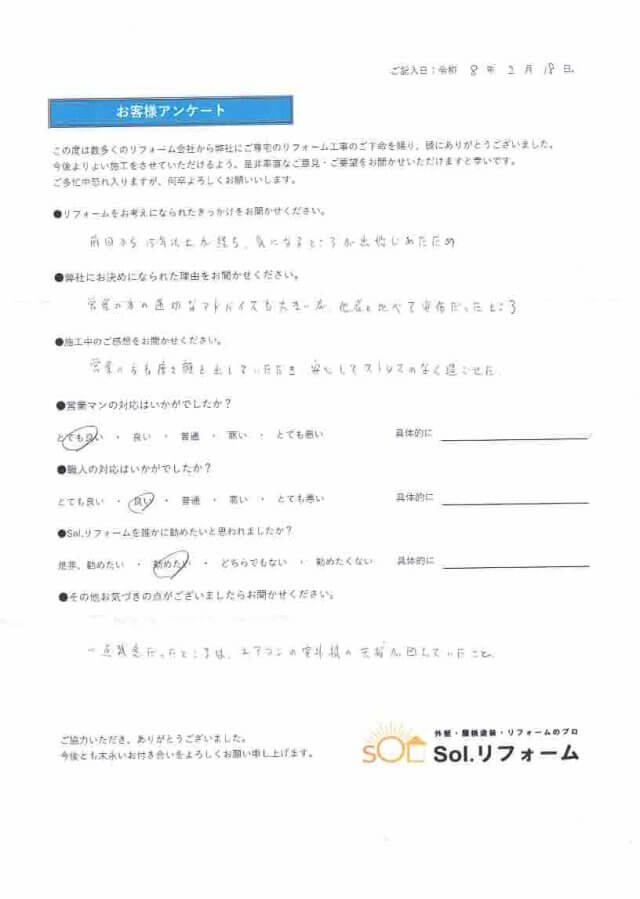 ご記入日：令和 8 年 2 月 18 日
お客様アンケート
この度は数多くのリフォーム会社から弊社にご尊宅のリフォーム工事のご下命を賜り、誠にありがとうございました。
今後よりよい施工をさせていただけるよう、是非率直なご意見・ご要望をお聞かせいただけますと幸いです。
ご多忙中恐れ入りますが、何卒よろしくお願いいします。
●リフォームをお考えになられたきっかけをお聞かせください。
前回から15年以上が経ち、気になるところが出始めたため
●弊社にお決めになられた理由をお聞かせください。
営業の方の適切なアドバイスも大きいが、他店と比べて安価だったところ
●施工中のご感想をお聞かせください。
営業の方も度々顔を出していただき 安心してストレスのなく過ごせた
●営業マンの対応はいかがでしたか？
とても良い ・ 良い ・ 普通 ・ 悪い ・ とても悪い 具体的に
●職人の対応はいかがでしたか？
とても良い ・ 良い ・ 普通 ・ 悪い ・ とても悪い 具体的に
●Sol.リフォームを誰かに勧めたいと思われましたか？
是非、勧めたい ・ 勧めたい ・ どちらでもない ・ 勧めたくない 具体的に
●その他お気づきの点がございましたらお聞かせください。
一点残念だったところは、エアコンの室外機の
ご協力いただき、ありがとうございました。
今後とも末永いお付き合いをよろしくお願い申し上げます。
SOL
外壁・屋根塗装・リフォームのプロ
Sol.リフォーム